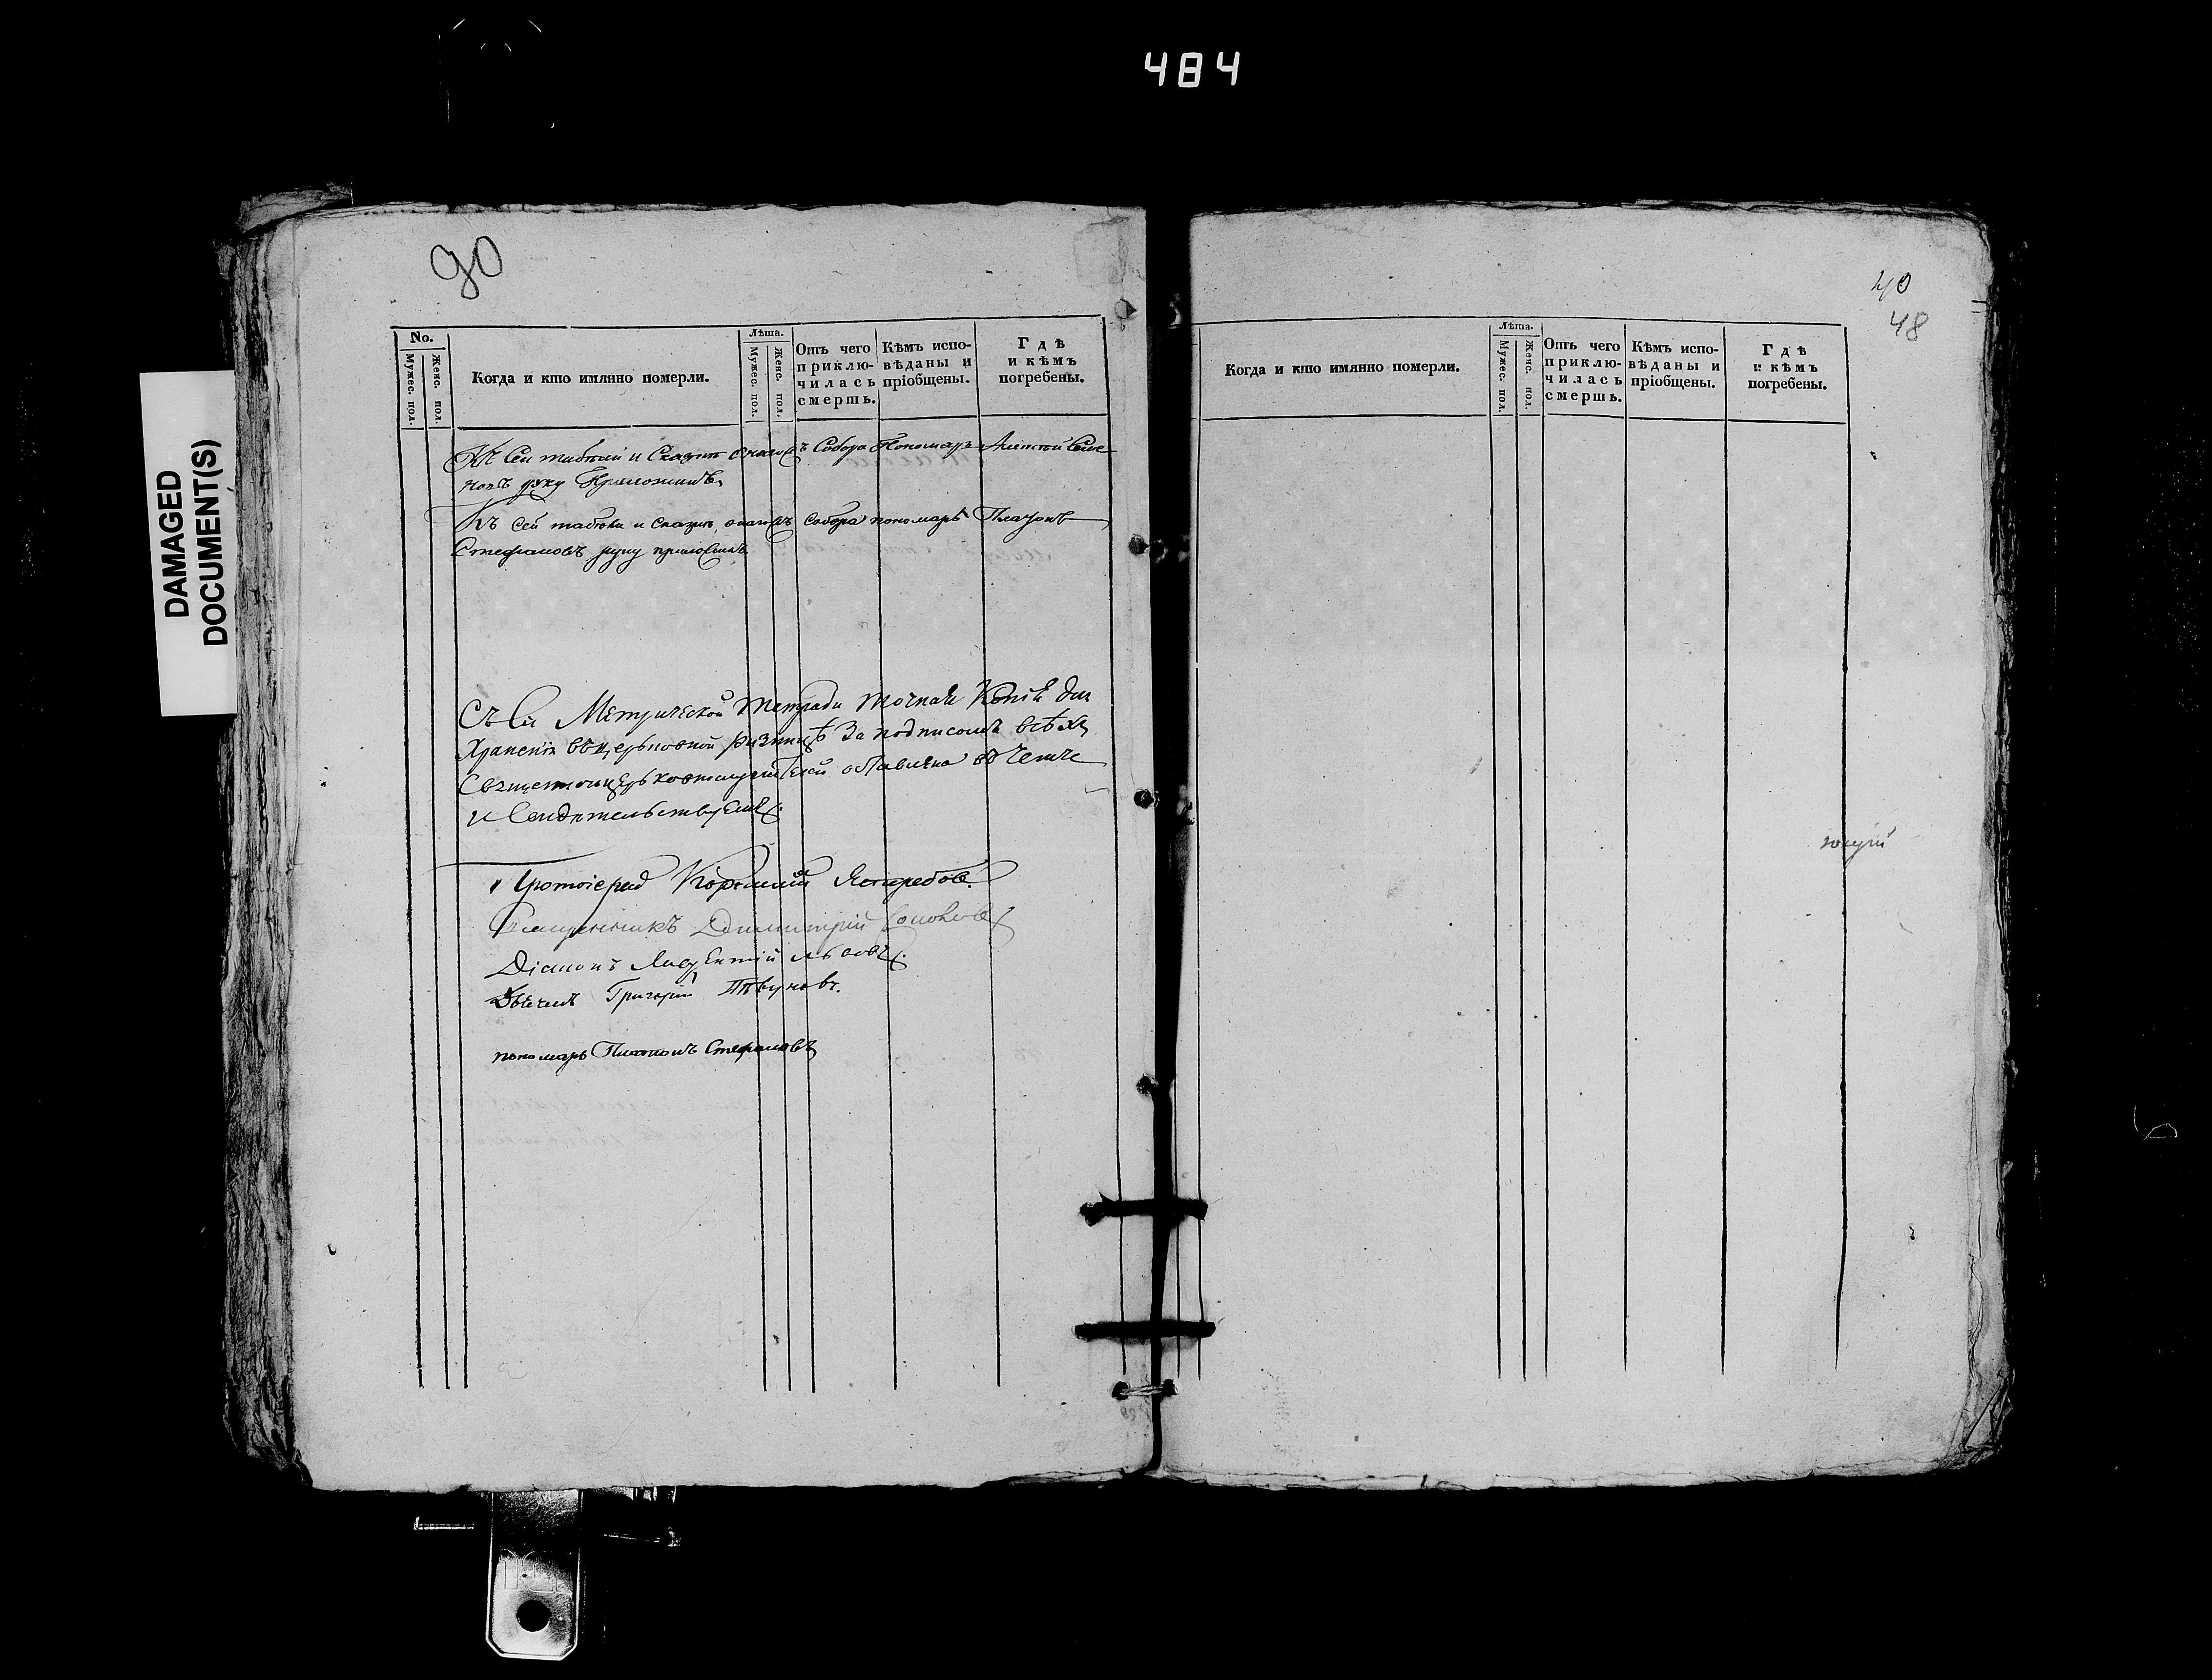 484
DAMAGED
DOCUMENT(S)
90
No.
Мужес. пол.
Женс. пол.
Когда и кто имянно померли.
Лѣта.
Мужес. пол.
Женс. пол.
Отъ чего
приклю-
чилась
смерть.
Кѣмъ испо-
вѣданы и
пріобщены.
Гдѣ
и кѣмъ
погребены.
Къ Сей и Собора Пономарь
новъ руку Приложилъ
Къ сей и собора пономарь Платонъ
Стефановъ руку приложилъ
Съ Сей Метрической Тетради точная Копія для
Храненія въ церьковной ризницѣ За подписомъ всѣхъ
оставлена въ чемъ
и Свидѣтельствуемъ.
Протоіерей Ястребовъ.
Священникъ Димитрій
Діаконъ Лаврентій Львовъ.
Дьячекъ Григорій Пѣвуновъ.
пономарь Платонъ Стефановъ
40
48
Когда и кто имянно померли.
Лѣта.
Мужес. пол.
Женс. пол.
Отъ чего
приклю-
чилась
смерть.
Кѣмъ испо-
вѣданы и
пріобщены.
Гдѣ
и кѣмъ
погребены.